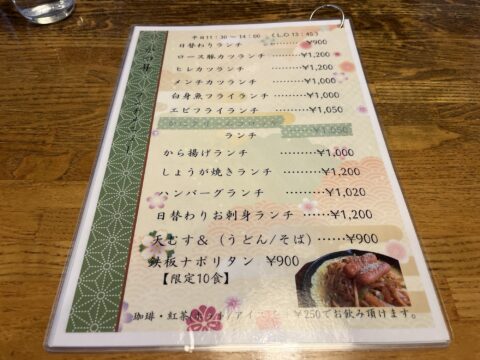 平日11:30～14:00 (L.O 13:45)
日替わりランチ ……¥900
ロース豚カツランチ ……¥1,200
ヒレカツランチ ………¥1,200
メンチカツランチ ………¥1,000
白身魚フライランチ ……¥1,000
エビフライランチ ………¥1,050
ランチ ¥1,050
から揚げランチ ………¥1,000
しょうが焼きランチ ……¥1,200
ハンバーグランチ ………¥1,020
日替わりお刺身ランチ …¥1,200
天むす＆（うどん/そば）……¥900
鉄板ナポリタン ¥900
【限定10食】
珈琲・紅茶 ¥250でお飲み頂けます。